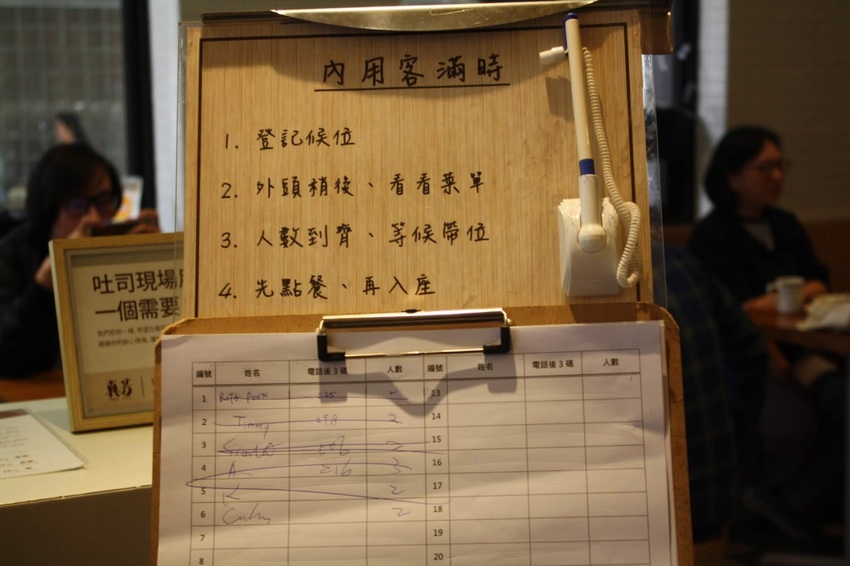 內用客滿時
1. 登記候位
2. 外頭稍後、看看菜單
3. 人數到齊、等候帶位
4. 先點餐、再入座
吐司現場
一個需要
編號 姓名 電話後3碼 人數 編號 姓名 電話後3碼 人數
1 13
2 Timmy 298 2 14
3 2 15
4 216 3 16
5 K 2 17
6 2 18
7 19
8 20